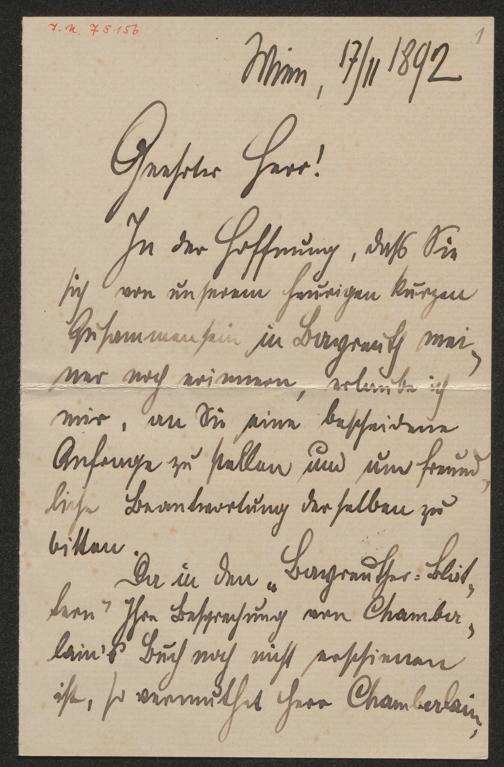 I. N. 75156
1
Wien, 17/II 1892
Geehrter Herr!
In der Hoffnung, daß Sie
sich von unserem heurigen kurzen
Zusammensein in Bayreuth mei-
ner noch erinnern, erlaube ich
mir, an Sie eine bescheidene
Anfrage zu stellen und um freund-
liche Beantwortung derselben zu
bitten.
Da in den „Bayreuther-Blät-
tern" Ihre Besprechung von Chamber-
lain's Buch noch nicht erschienen
ist, so vermuthet Herr Chamberlain,